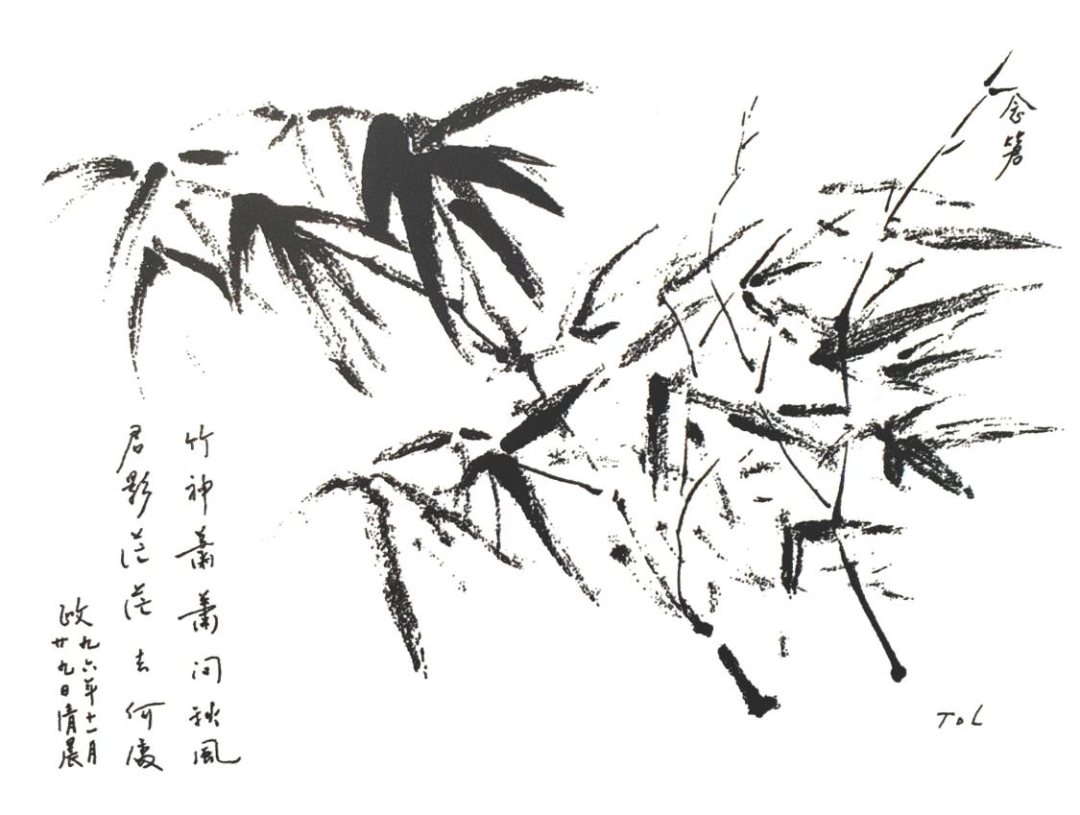 念筠
竹神蕭蕭问秋風
君影茫茫去何處
政九六年十一月
廿九日清晨
TOL